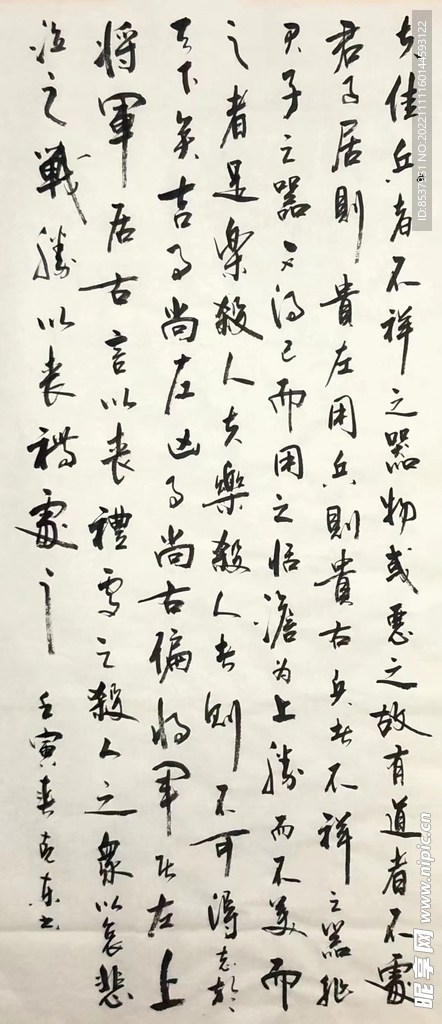 夫佳兵者不祥之器物或惡之故有道者不處
君子居則貴左用兵則貴右兵者不祥之器非
君子之器不得已而用之恬澹为上勝而不美而
之者是楽殺人夫樂殺人者則不可得志於
天下矣吉事尚左凶事尚右偏将軍居左上
將軍居右言以喪禮處之殺人之衆以哀悲
泣之戰勝以喪禮處之
壬寅春克東书
昵享网 www.nipic.cn
ID:8537951 NO:20221111160144593122